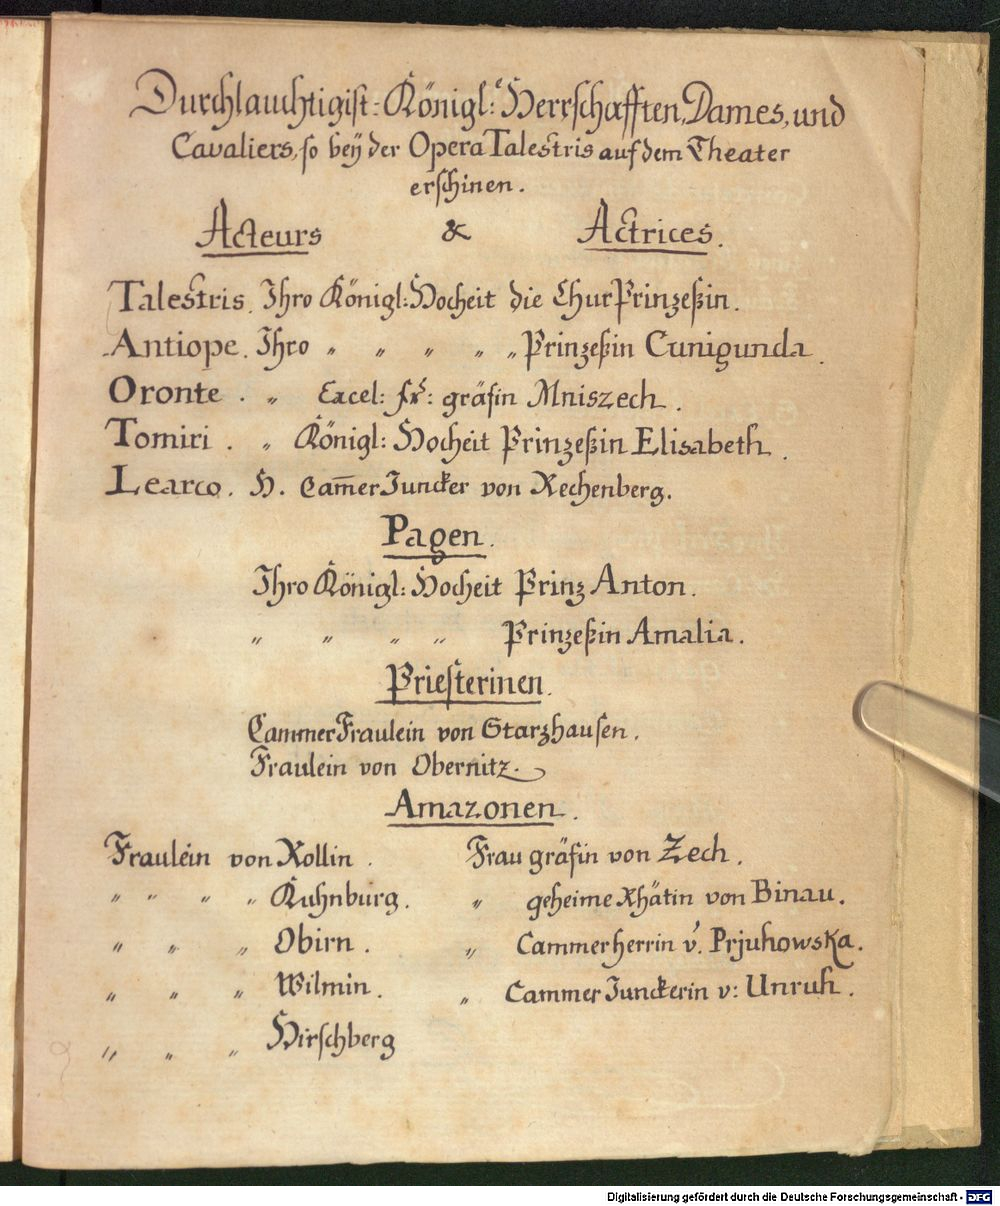 Durchlauchtigist-Königl: Herrschafften, Dames, und
Cavaliers, so beÿ der Opera Talestris auf dem Theater
erschinen.
Acteurs & Actrices.
Talestris. Ihro Königl: Hocheit die ChurPrinzeßin.
Antiope. Ihro „ „ „ „ „ Prinzeßin Cunigunda.
Oronte. „ Excel: gräfin Mniszech.
Tomiri. „ Königl: Hocheit Prinzeßin Elisabeth.
Learco. H. Cam̅erJuncker von Rechenberg.
Pagen.
Ihro Königl: Hocheit Prinz Anton.
„ „ „ „ Prinzeßin Amalia.
Priesterinen.
CammerFraulein von Starzhausen.
Fraulein von Obernitz.
Amazonen.
Fraulein von Rollin. Frau gräfin von Zech.
„ „ „ „ Kuhnburg. „ geheime Rhätin von Binau.
„ „ „ Obirn. „ Cammerherrin v. Prjuhowska.
„ „ „ Wilmin. „ CammerJunckerin v: Unruh.
„ „ „ Hirschberg
Digitalisierung gefördert durch die Deutsche Forschungsgemeinschaft - DFG